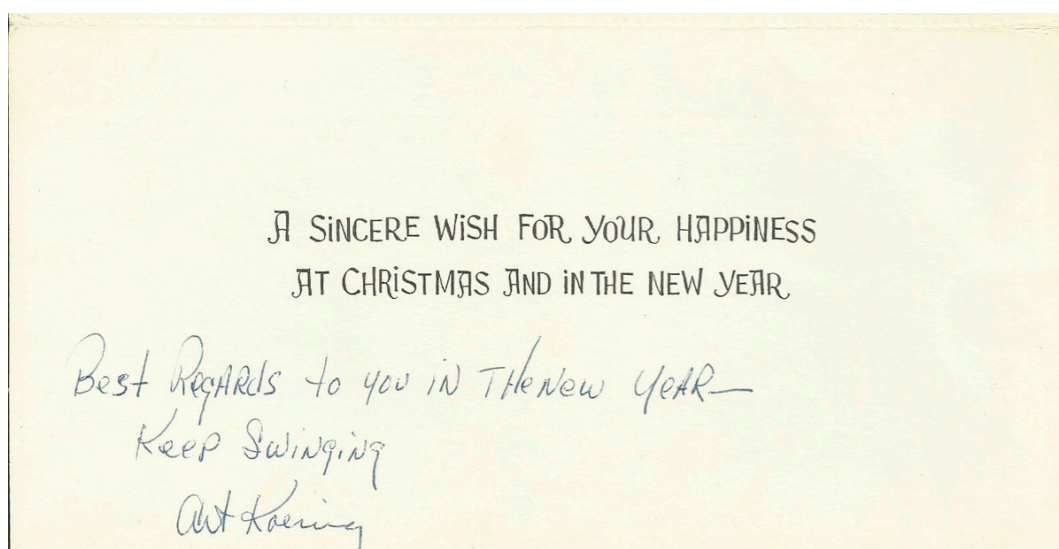 A SINCERE WISH FOR YOUR HAPPINESS
AT CHRISTMAS AND IN THE NEW YEAR
Best Regards to you in The New Year—
Keep Swinging
Art